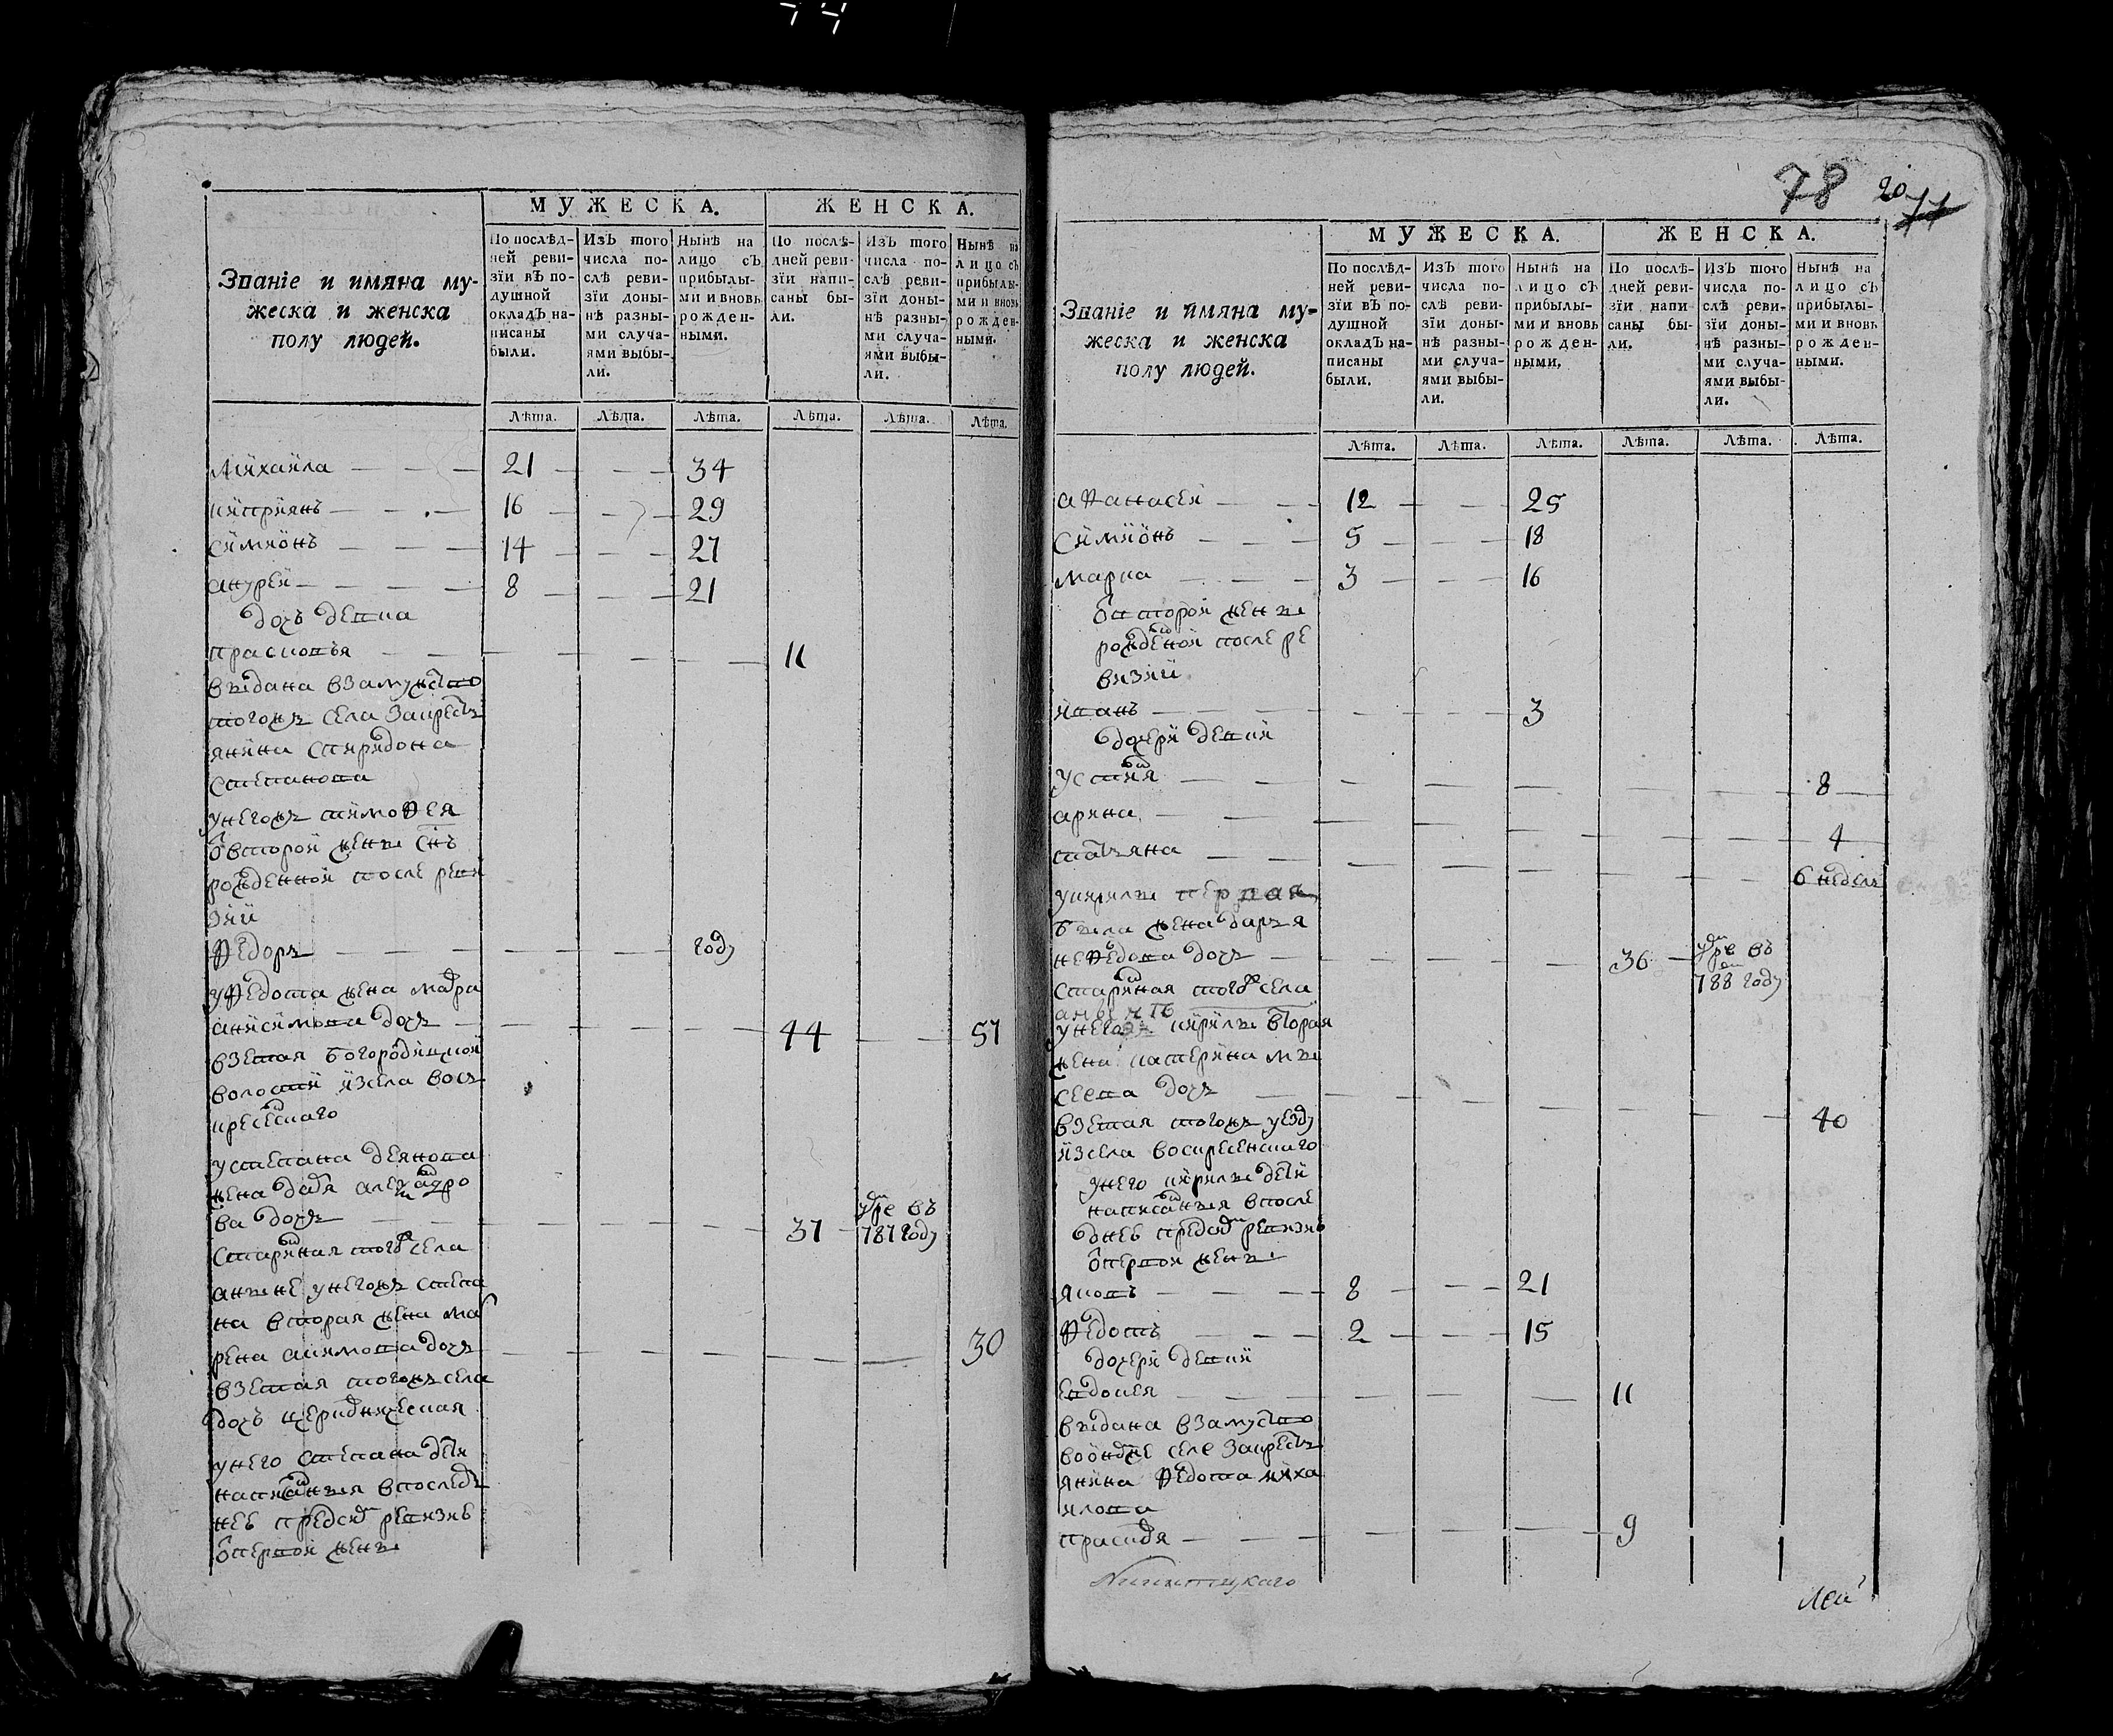 78 20 77
МУЖЕСКА. ЖЕНСКА.
Званіе и имяна му-
жеска и женска
полу людей.
По послѣд-
ней реви-
зїи въ по-
душной
окладъ на-
писаны
были.
Изъ того
числа по-
слѣ реви-
зїи доны-
нѣ разны-
ми случа-
ями выбы-
ли.
Нынѣ на
лицо съ
прибылы-
ми и вновь
рожден-
ными.
По послѣ-
дней реви-
зїи напи-
саны бы-
ли.
Изъ того
числа по-
слѣ реви-
зїи доны-
нѣ разны-
ми случа-
ями выбы-
ли.
Нынѣ на
лицо съ
прибылы-
ми и вновь
рожден-
ными.
Лѣта. Лѣта. Лѣта. Лѣта. Лѣта. Лѣта.
Михаила 21 34
киприянъ 16 29
симионъ 14 27
андрей 8 21
дочь девка
прасковья 11
выдана взамужство
тогожъ села за крестъ
янина спиридона
степанова
унегожъ тимофея
овторой жены снъ
рожденной после реви
зии
федоръ году
уфедота жена мадра
анисимова дочь 44 57
взетая богородицкой
волости изсела вось
кресенскаго
устепана деянова
жена дадя александро
ва дочь 37 умре въ
787 году
старинная тогожъ села
аныне унегожъ степа
на вторая жена ма
рена акимова дочь 30
взетая тогожъ села
дочь
унего степана дети
написанныя впоследъ
неѣ пред сим ревизиѣ
отпервой жены
МУЖЕСКА. ЖЕНСКА.
Званіе и имяна му-
жеска и женска
полу людей.
По послѣд-
ней реви-
зїи въ по-
душной
окладъ на-
писаны
были.
Изъ того
числа по-
слѣ реви-
зїи доны-
нѣ разны-
ми случа-
ями выбы-
ли.
Нынѣ на
лицо съ
прибылы-
ми и вновь
рожден-
ными.
По послѣ-
дней реви-
зїи напи-
саны бы-
ли.
Изъ того
числа по-
слѣ реви-
зїи доны-
нѣ разны-
ми случа-
ями выбы-
ли.
Нынѣ на
лицо съ
прибылы-
ми и вновь
рожден-
ными.
Лѣта. Лѣта. Лѣта. Лѣта. Лѣта. Лѣта.
афанасей 12 25
симионъ 5 18
марка 3 16
овторой жены
рожденной после ре
визии
иванъ 3
дочери девки
устиня 8
арина 4
татьяна 6 недель
укирилы первая
была жена дарья
нефедова дочь 36 умре въ
788 году
старинная тогожъ села
аныне
унегожъ кирилы вторая
жена катерина мы
сеева дочь 40
взетая тогожъ уезду
изсела воскресенскаго
унего кирилы дети
написанныя впосле
днеѣ пред сим ревизиѣ
отпервой жены
яковъ 8 21
федотъ 2 15
дочери девки
евдокея 11
выдана взамуство
воондже селе за крестъ
янина федота миха
илова
праскодя 9